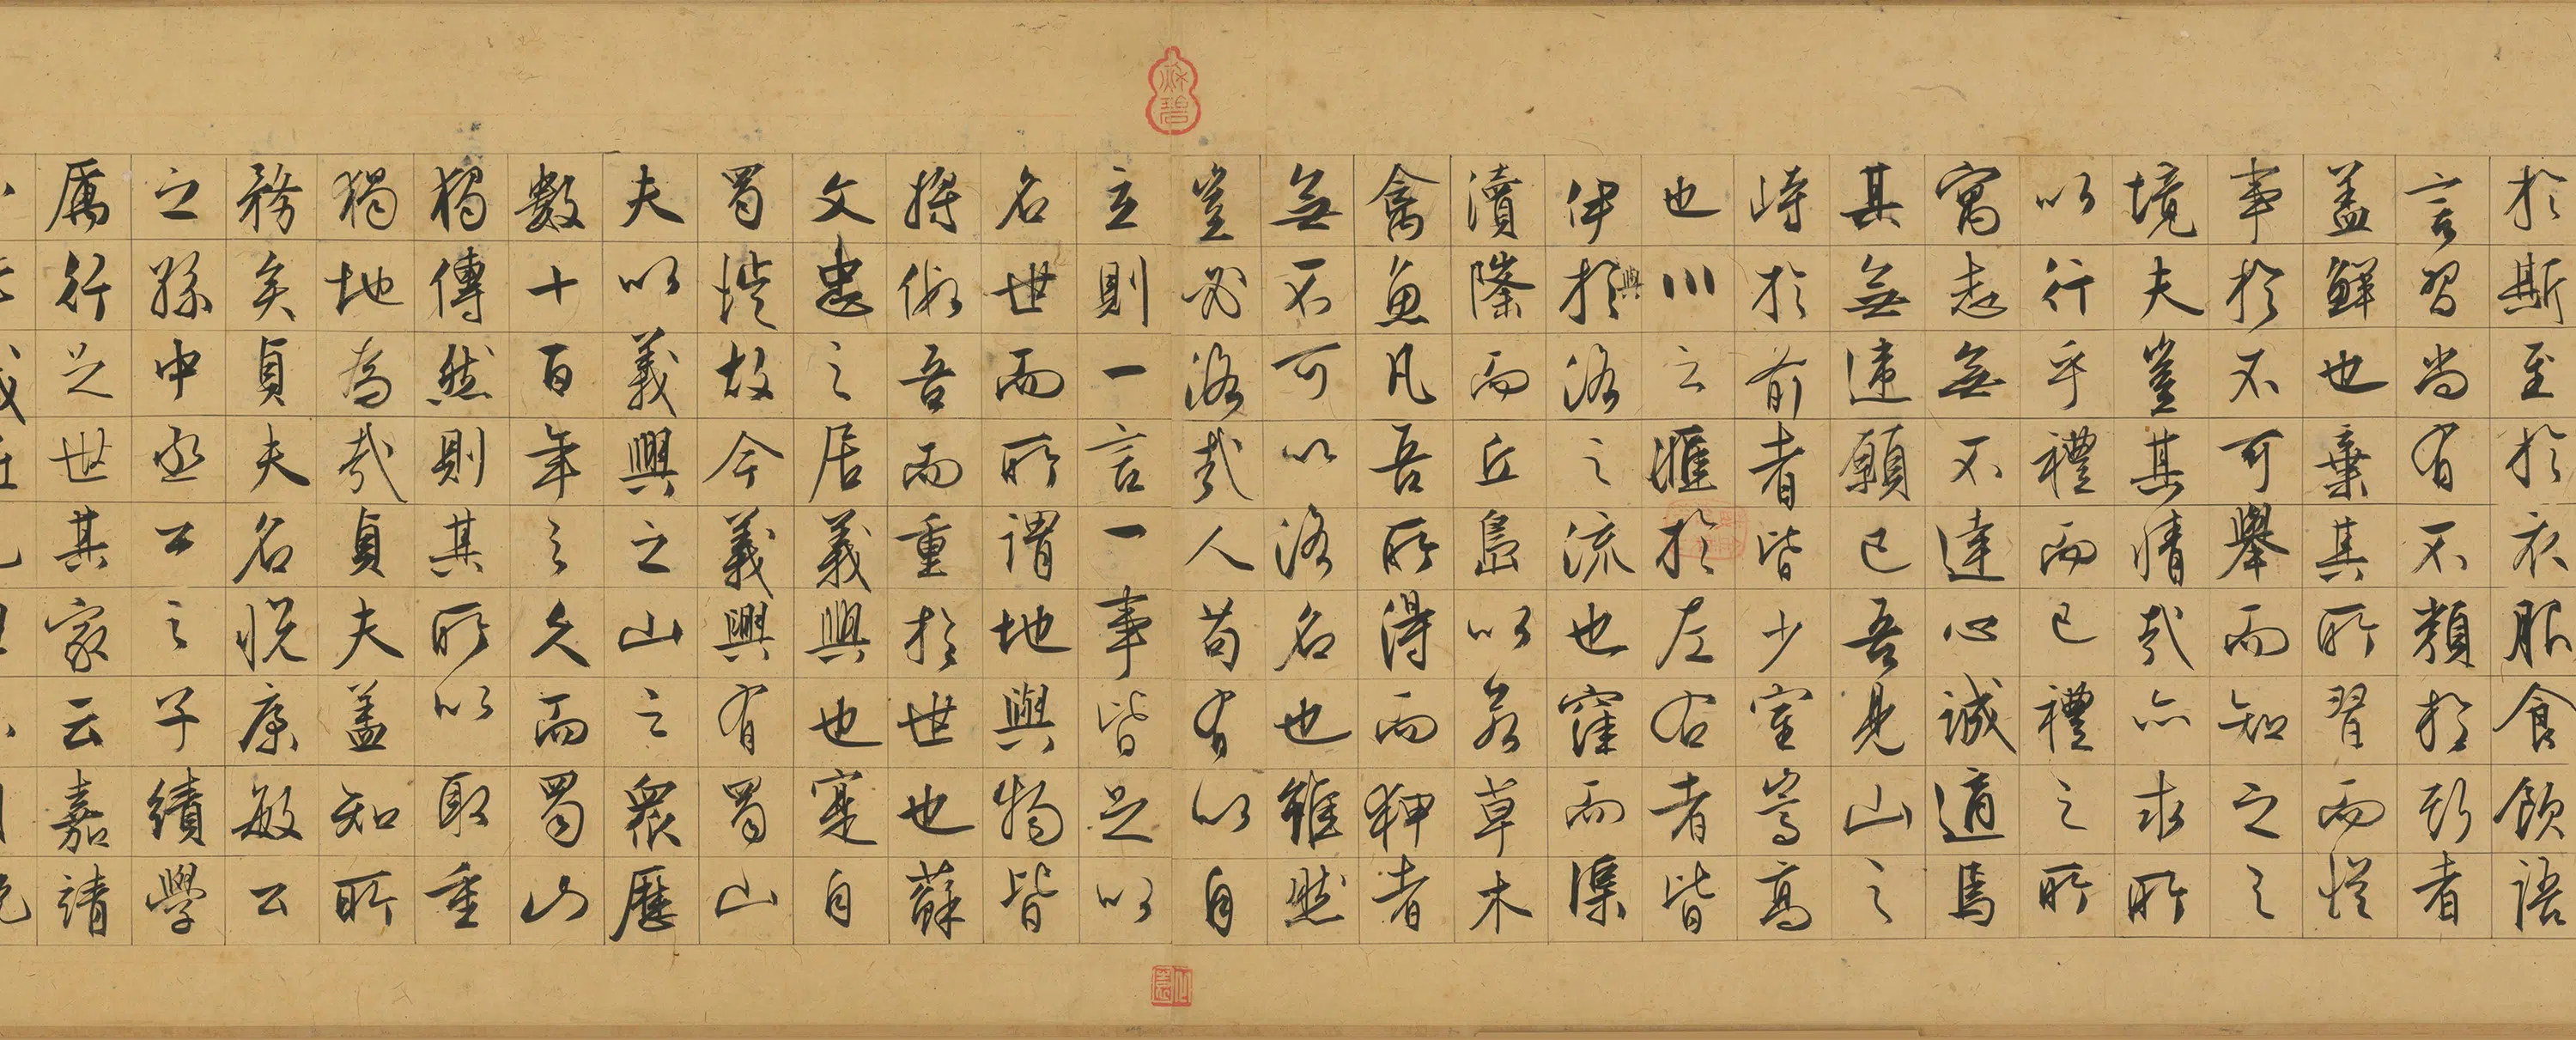 於斯至於衣服食飲語
言習尚有不類於斯者
蓋鮮也棄其所習而従
事於不可舉而知之之
境夫豈其情哉亦求所
以行乎禮而已禮之所
寓志無不達心誠適焉
其無違願已吾見山之
峙於前者皆少室嵩高
也川之匯於左右者皆
伊與於洛之流也窪而渠
瀆隆而丘島以為草木
禽魚凡吾所得而狎者
無不可以洛名也雖然
豈必洛哉人苟有以自
立則一言一事皆足以
名世而所謂地與物皆
将假吾而重於世也蘇
文忠之居義興也寔自
蜀徙故今義興有蜀山
夫以義興之山之衆歷
數十百年之久而蜀山
獨傳然則其所以取重
獨地為哉貞夫蓋知所
務矣貞夫名悅康敏公
之孫中丞公之子績學
厲行足世其家云嘉靖